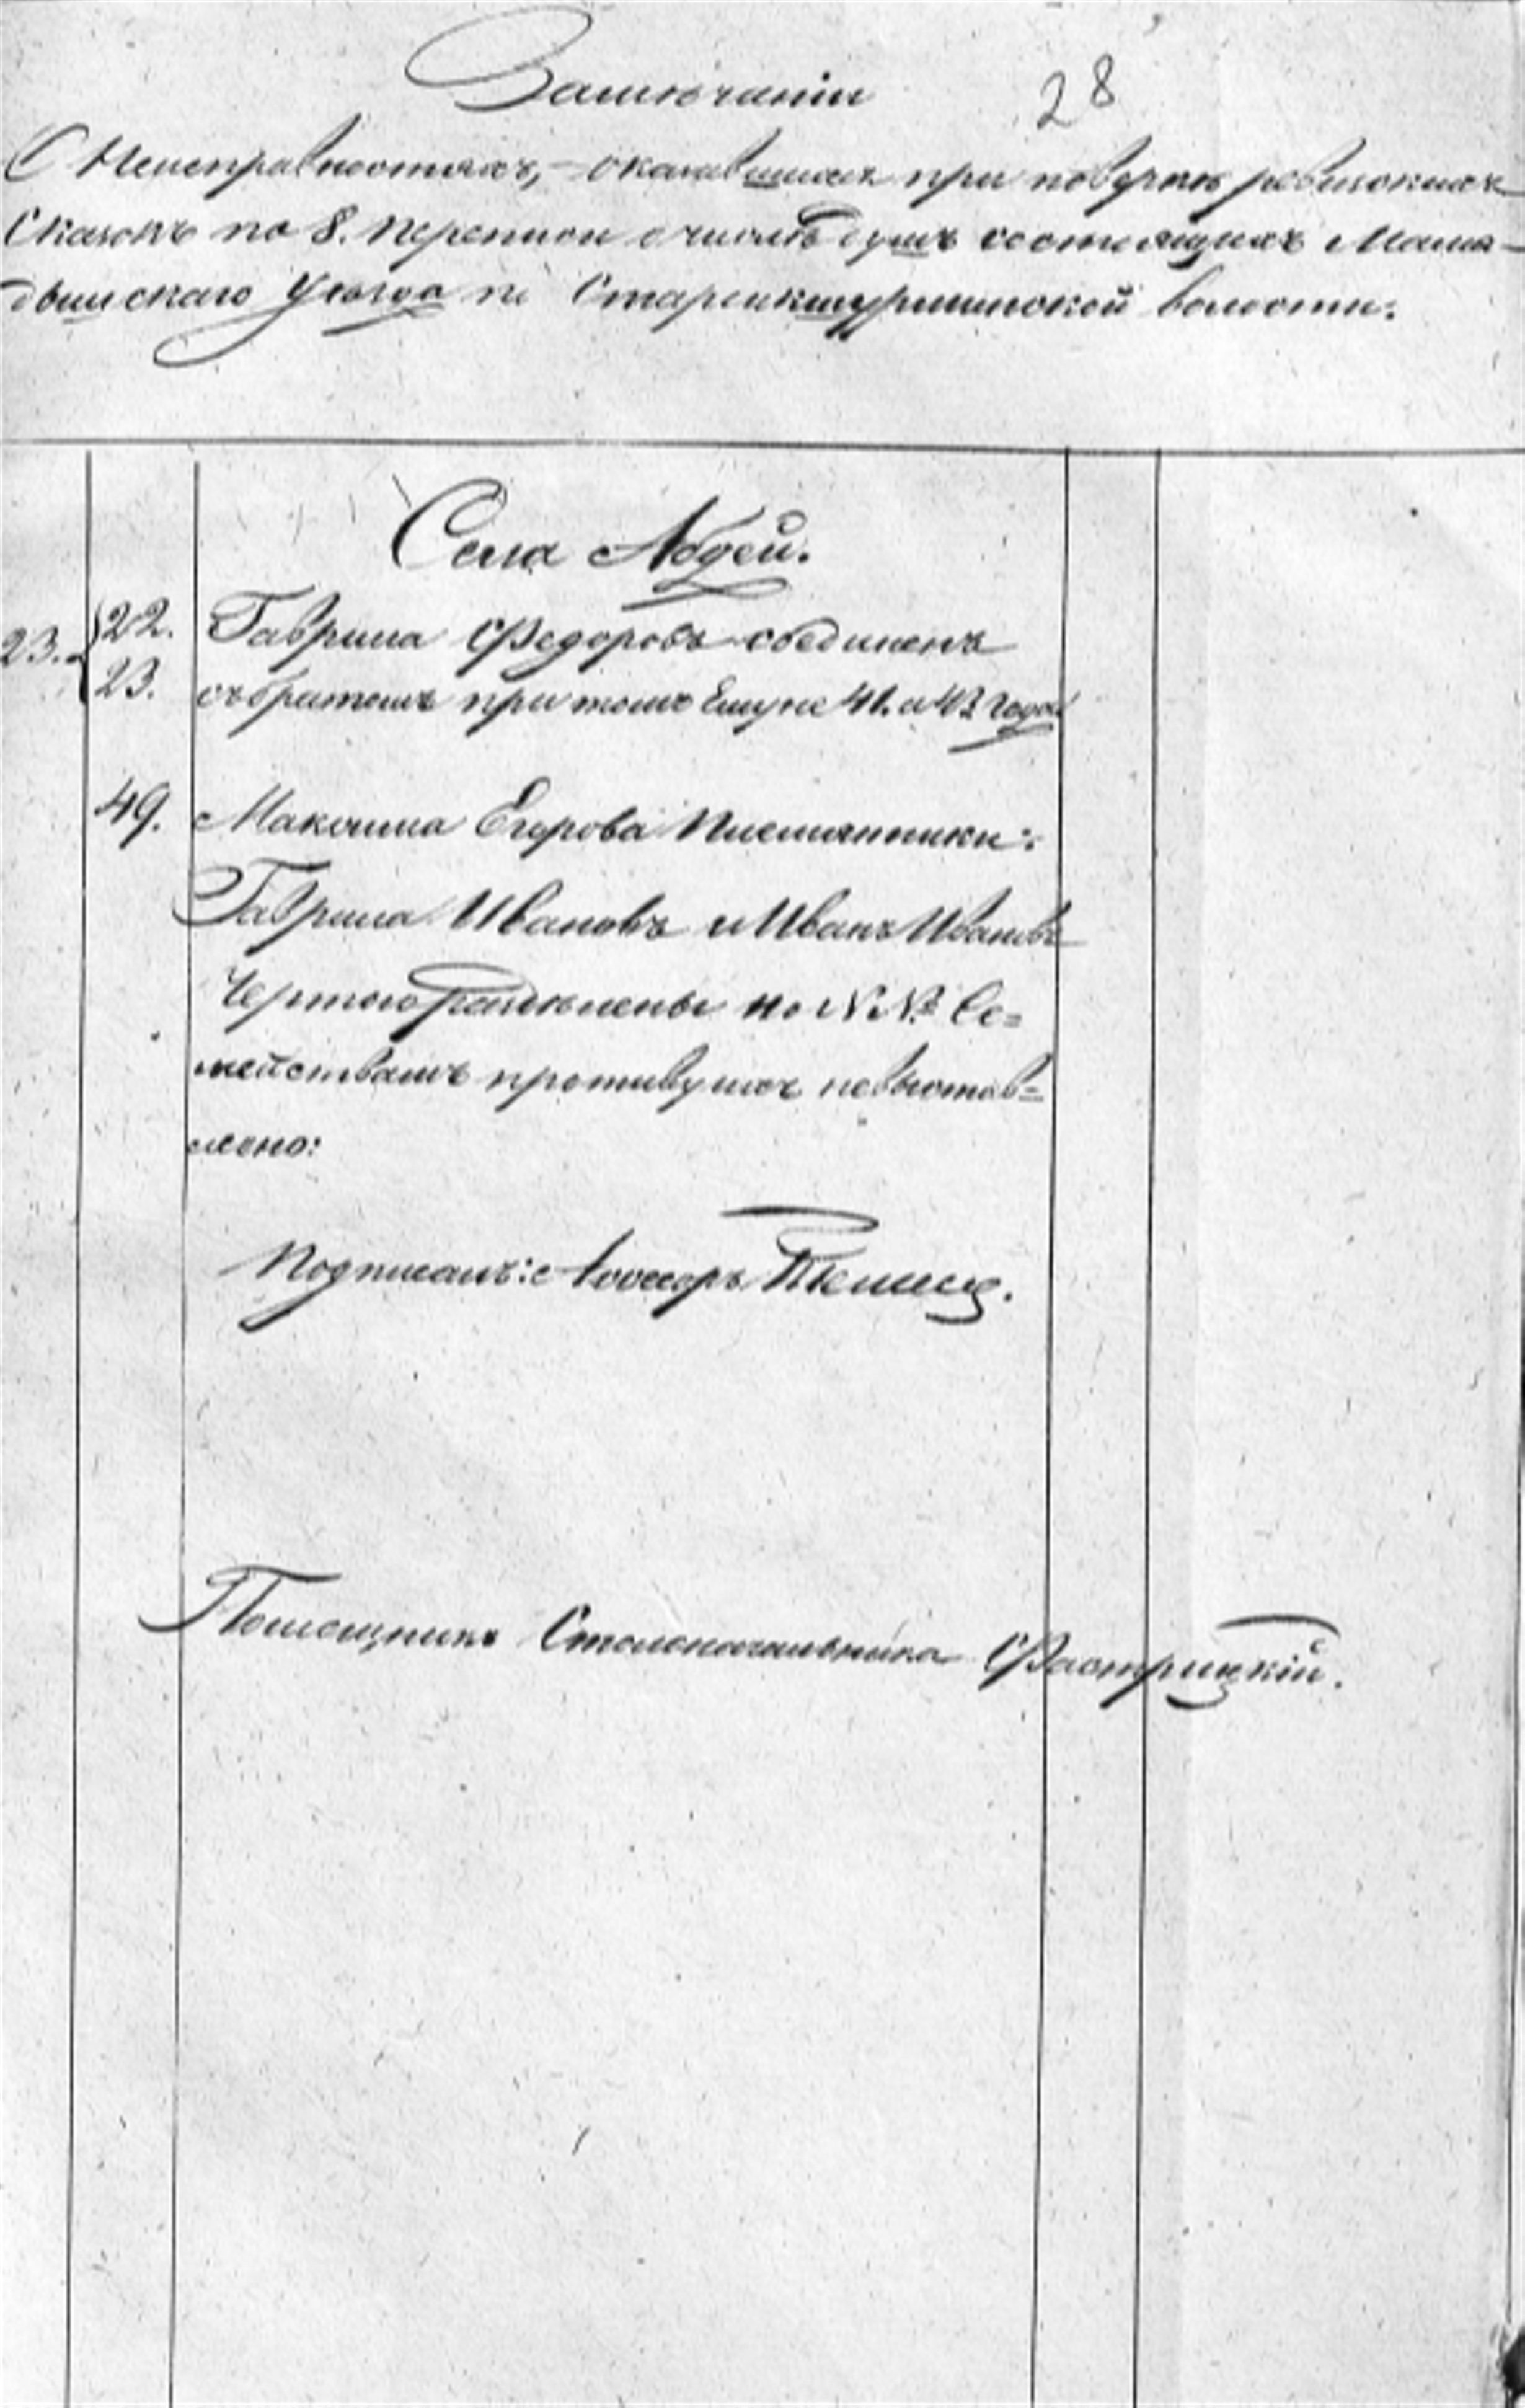 Замечанiи
28
О Неисправностяхъ, оказавшихся при поверке ревизскихъ
Сказокъ по 8. переписи о числѣ душъ состоящихъ Мама-
дышскаго уезда по волости:
Села Абдей.
23. 22. Гаврила Федоровъ соединенъ
23. съ братомъ при томъ Ему не 41. и 43 года
49. Максима Егорова племянники:
Гаврила Ивановъ и Иванъ Ивановъ
Чертою разделены но №№ Се=
мействамъ противу ихъ невыстав=
лено:
Подписалъ: Асессоръ
Помощникъ Столоначальника Фастрицкiй.